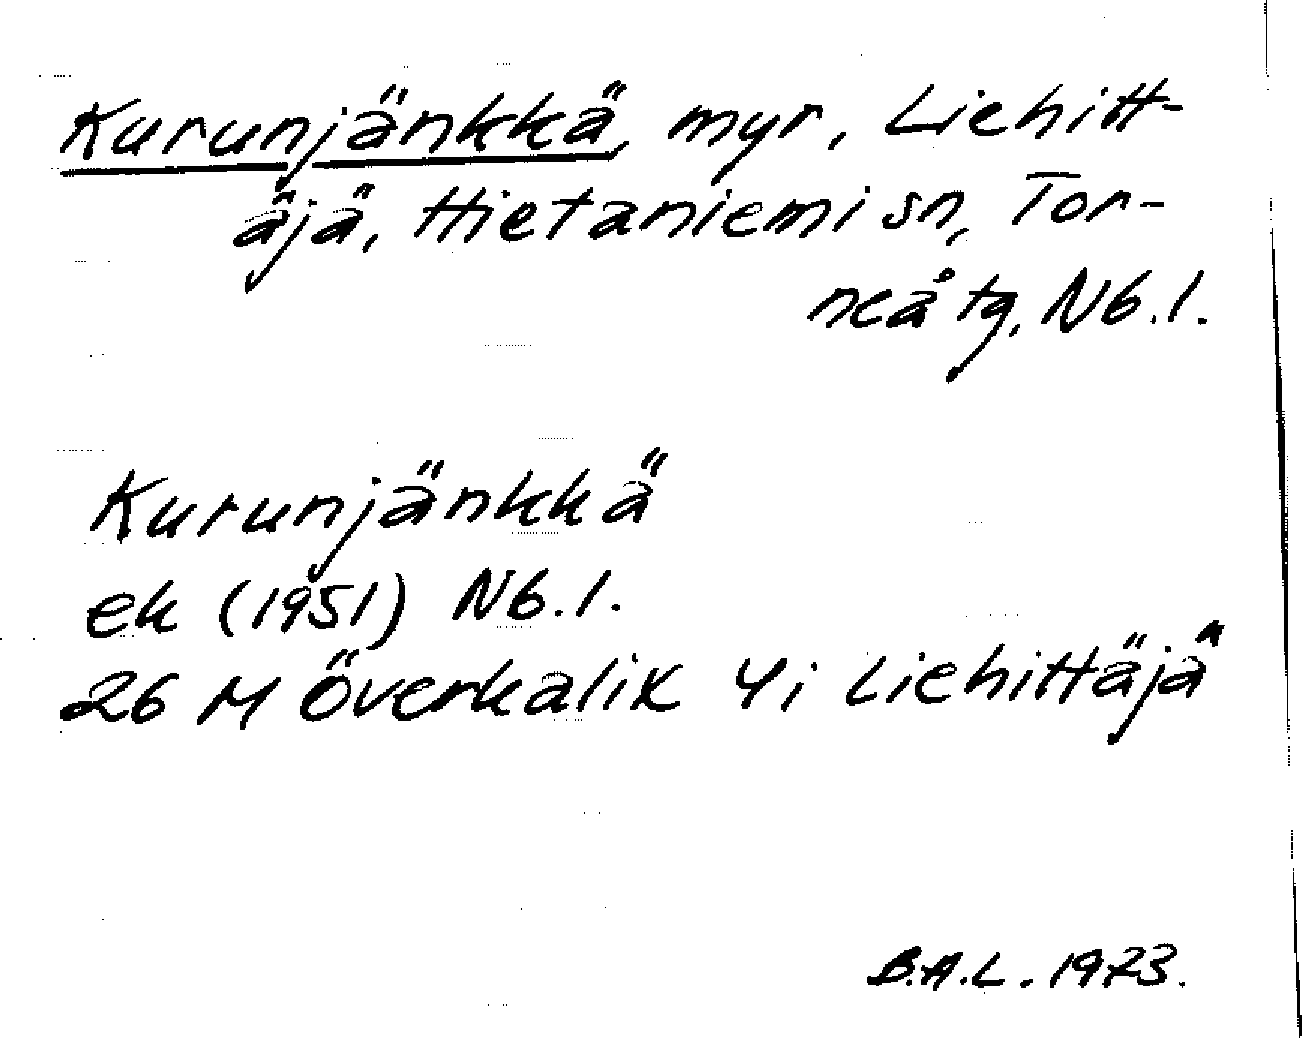 Kurunjänkkä, myr, Liehitt-
äjä, Hietaniemi sn, Tor-
neå tg, Nb.l.
Kurunjänkkä
ek (1951) Nb.l.
26 M Överkalix 4i Liehittäjä
B.A.L. 1973.